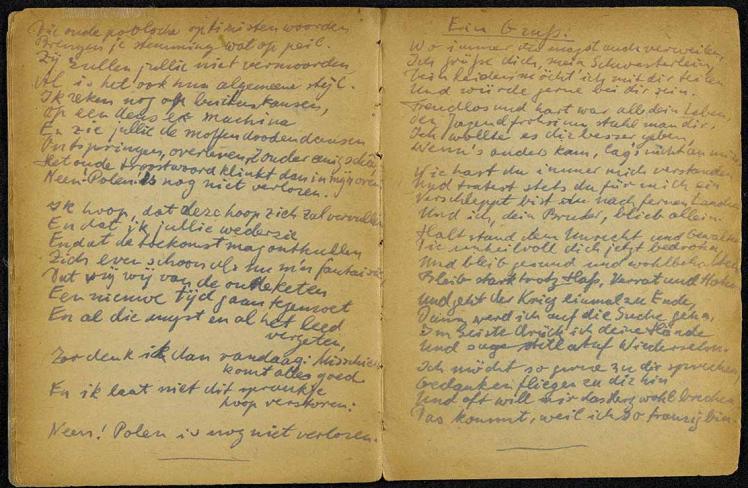 Die oude poolsche optimisten woorden
Brengen je stemming wat op peil.
Zij zullen jullie niet vermoorden
Al is het ook hun algemeene stijl.
Ik reken nog op buitenkansen,
Op een deus ex machina
En zie jullie de moffendoodendansen
Ontspringen, overleven, zonder
Het oude troostwoord klinkt dan in mijn ooren
Neen! Polen is nog niet verloren.
Ik hoop, dat deze hoop zich zal vervullen
En dat ik jullie wederzie
En dat de toekomst mag onthullen
Zich even schoon als nu m'n fantaisie
Dat wij van de ketens
Een nieuwe tijd gaan tegemoet
En al die angst en al het leed
vergeten,
Zoo denk ik dan vandaag: Misschien
komt alles goed
En ik laat niet dit sprankje
hoop verstoren:
Neen! Polen is nog niet verloren.
Ein Gruß.
Wo immer du magst auch verweilen,
Ich grüße dich, mein Schwesterlein,
Dein Leiden möcht ich mit dir teilen
Und würde gerne bei dir sein.
Freudlos und hart war all dein Leben,
Den Jugendfrohsinn stahl man dir,
Ich wollte es dir besser geben,
Wenn's anders kam, lag's nicht an mir.
Wie hast du immer mich verstanden
Und tratest stets du für mich ein
Verschleppt bist du nach fernen Landen
Und ich, dein Bruder, blieb allein.
Halt stand dem Unrecht und Gewalten
Die unheilvoll dich jetzt bedrohen
Und bleib gesund und wohlbehalten
Bleib stark trotz Haß, Verrat und Hohn
Und geht der Krieg einmal zu Ende,
Dann werd ich auf die Suche gehn,
Im Geiste drück ich deine Hände
Und sage still auf Wiedersehn.
Ich möcht so gerne zu dir sprechen
Gedanken fliegen zu dir hin
Und oft will mir das Herz wohl brechen
Das kommt, weil ich so traurig bin.